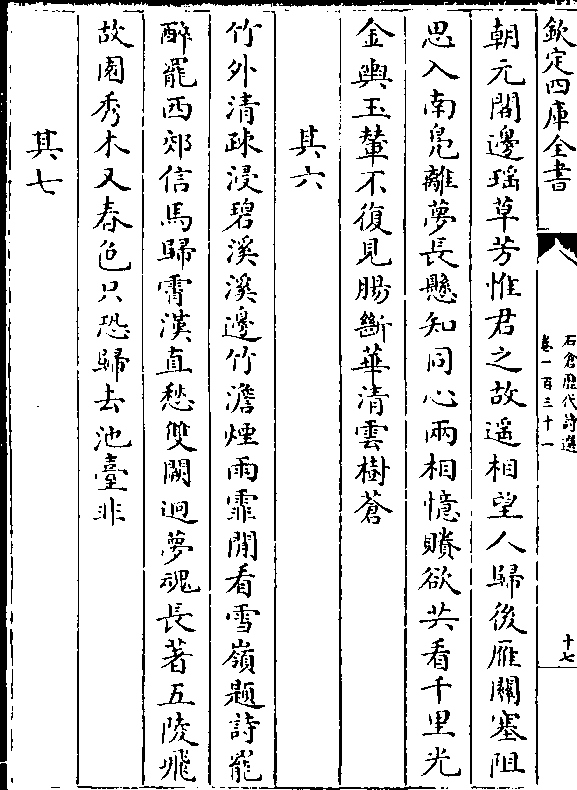 欽定四庫全書
石倉歴代詩選
卷一百三十一
十七
朝元閣邊瑶草芳惟君之故遥相望人歸後雁關塞阻
思入南鳬離夢長懸知同心兩相憶賸欲共看千里光
金輿玉輦不復見腸斷華清雲樹蒼
其六
竹外清疎浸碧溪溪邊竹澹煙雨霏閒看雪嶺題詩罷
醉罷西郊信馬歸霄漢直愁雙闕迥夢魂長著五陵飛
故園秀木又春色只恐歸去池臺非
其七